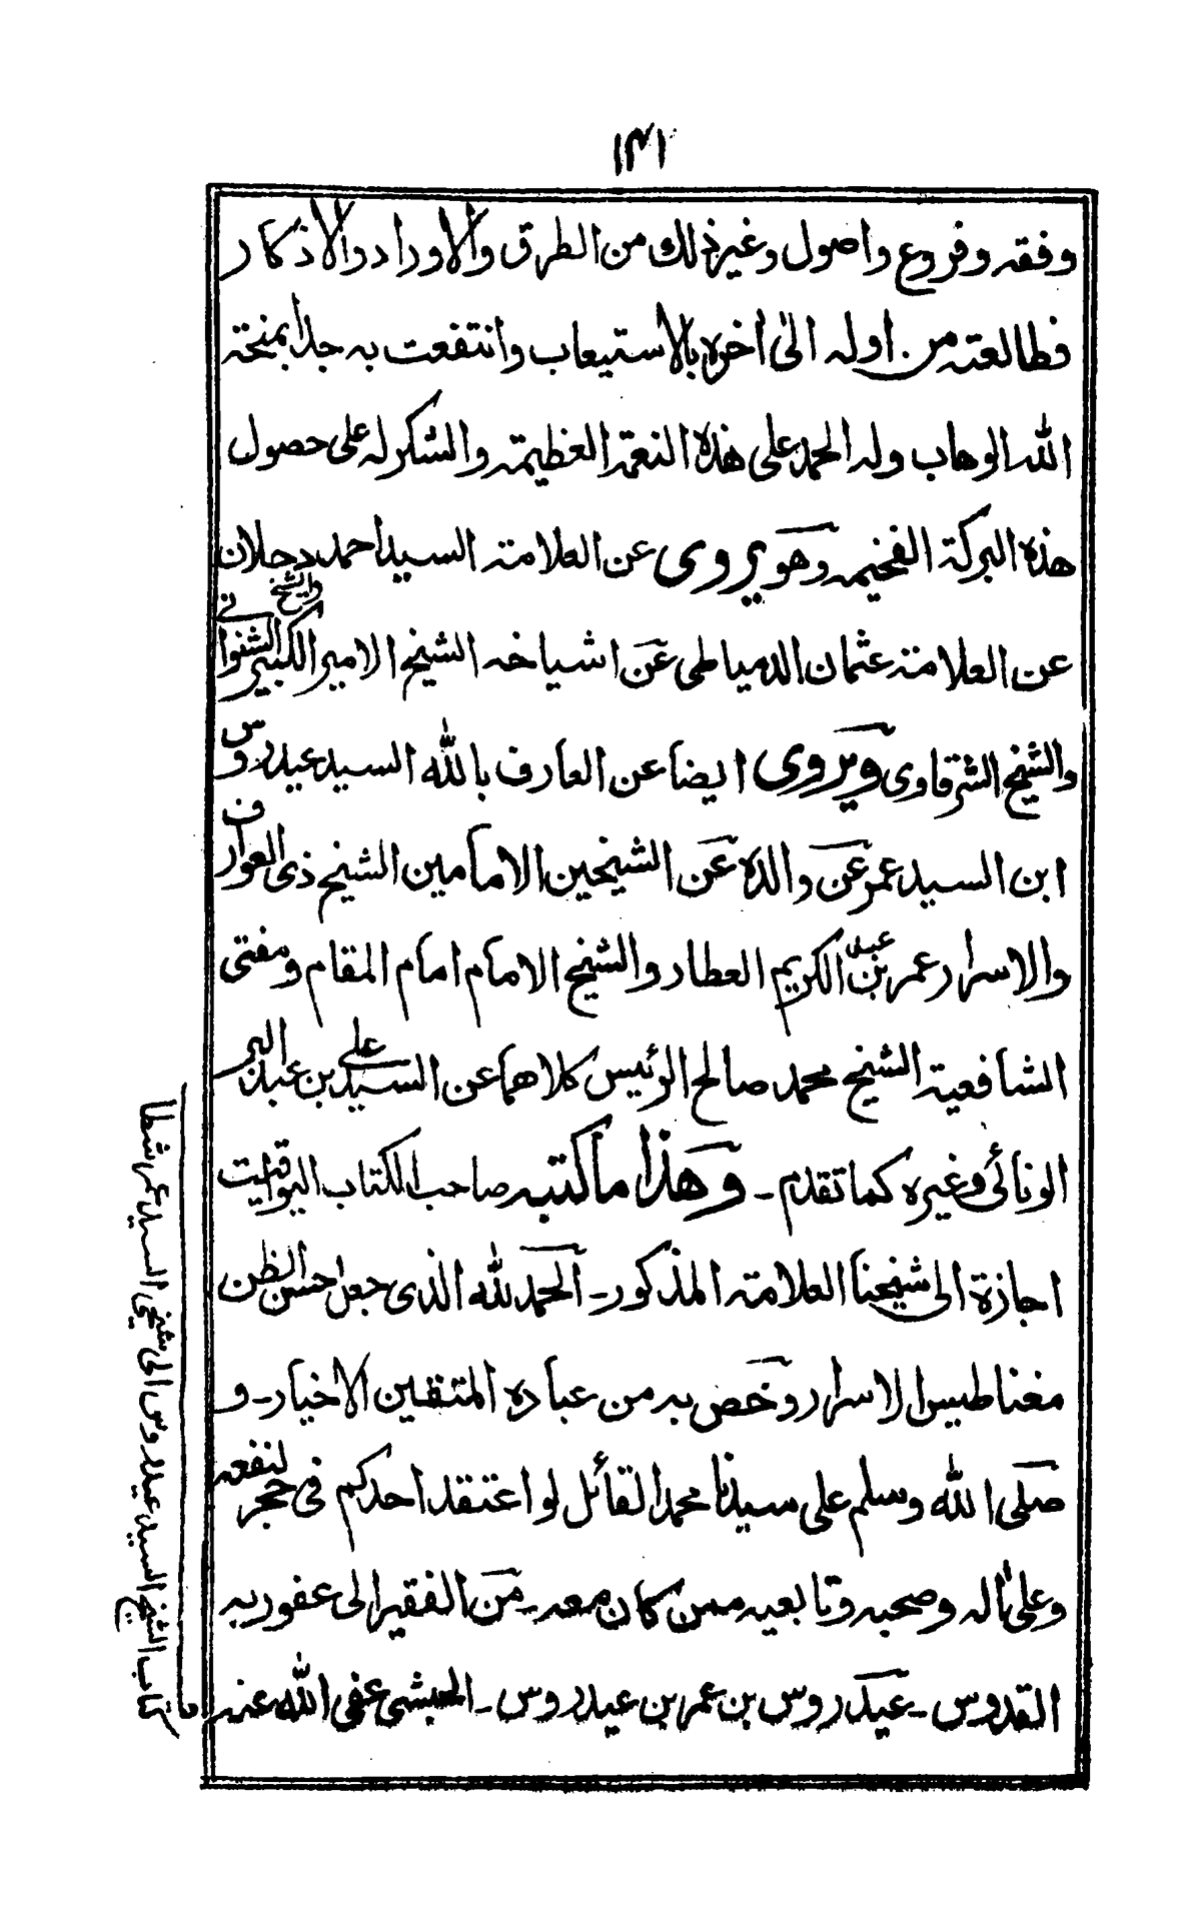 ١٣١
وفقه وفروع واصول وغير ذلك من الطرق والاوراد والاذكار
فطالعته من اوله الى اخره بالاستيعاب وانتفعت به جدا بمنحة
الله الوهاب وله الحمد على هذه النعمة العظيمة والشكر له على حصول
هذه البركة الفخيمه وهو يروى عن العلامة السيد احمد دحلان
عن العلامة عثمان الدمياطى عن اشياخه الشيخ الامير الكبير والشيخ الشنوانى
والشيخ الشرقاوى ويروى ايضا عن العارف بالله السيد عيدروس
ابن السيد عمر عن والده عن الشيخين الامامين الشيخ ذى العوارف
والاسرار عمر بن عبد الكريم العطار والشيخ الامام امام المقام ومفتى
الشافعية الشيخ محمد صالح الرئيس كلاهما عن السيد على بن عبد البر
الونائى وغيره كما تقدم - وهذا ما كتبه صاحب الكتاب اليواقيت
اجازة الى شيخنا العلامة المذكور - الحمد لله الذى جعل احسن الظن
مغناطيس الاسرار وخص به من عباده المتقين الاخيار - و
صلى الله وسلم على سيدنا محمد القائل لو اعتقد احدكم فى حجر لنفعه
وعلى اله وصحبه وتابعيه ممن كان معه - من الفقير الى عفو ربه
القدوس - عيدروس بن عمر بن عيدروس - الحبشى عفى الله عنه
كتاب الشيخ السيد عيدروس الى شيخى السيد عمر شطا